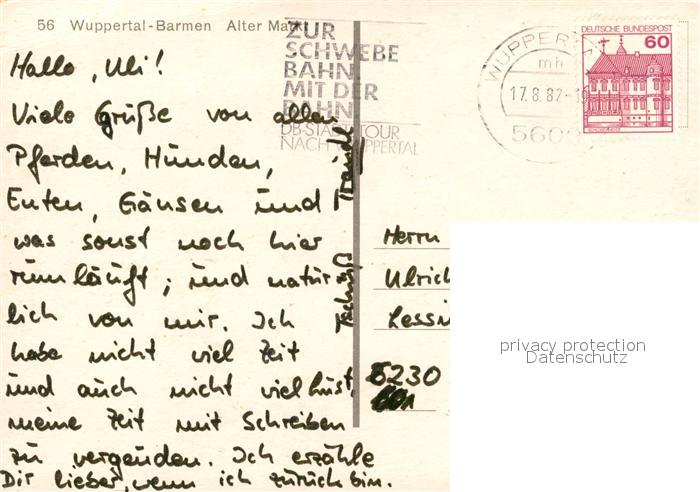 56 Wuppertal-Barmen Alter Markt
ZUR
SCHWEBE
BAHN
MIT DER
BAHN
DB-STADT-TOUR
NACH WUPPERTAL
WUPPERTAL
mh
17.8.82-18
5600
DEUTSCHE BUNDESPOST
60
Hallo, Uli!
Viele Grüße von allen
Pferden, Hunden,
Enten, Gänsen und
was sonst noch hier
rumläuft; und natür-
lich von mir. Ich
habe nicht viel Zeit
und auch nicht viel Lust,
meine Zeit mit Schreiben
zu vergeuden. Ich erzähle
Dir lieber, wenn ich zurück bin.
Tschüß Traudl
Herrn
Ulrich
Lessin
5230
privacy protection
Datenschutz